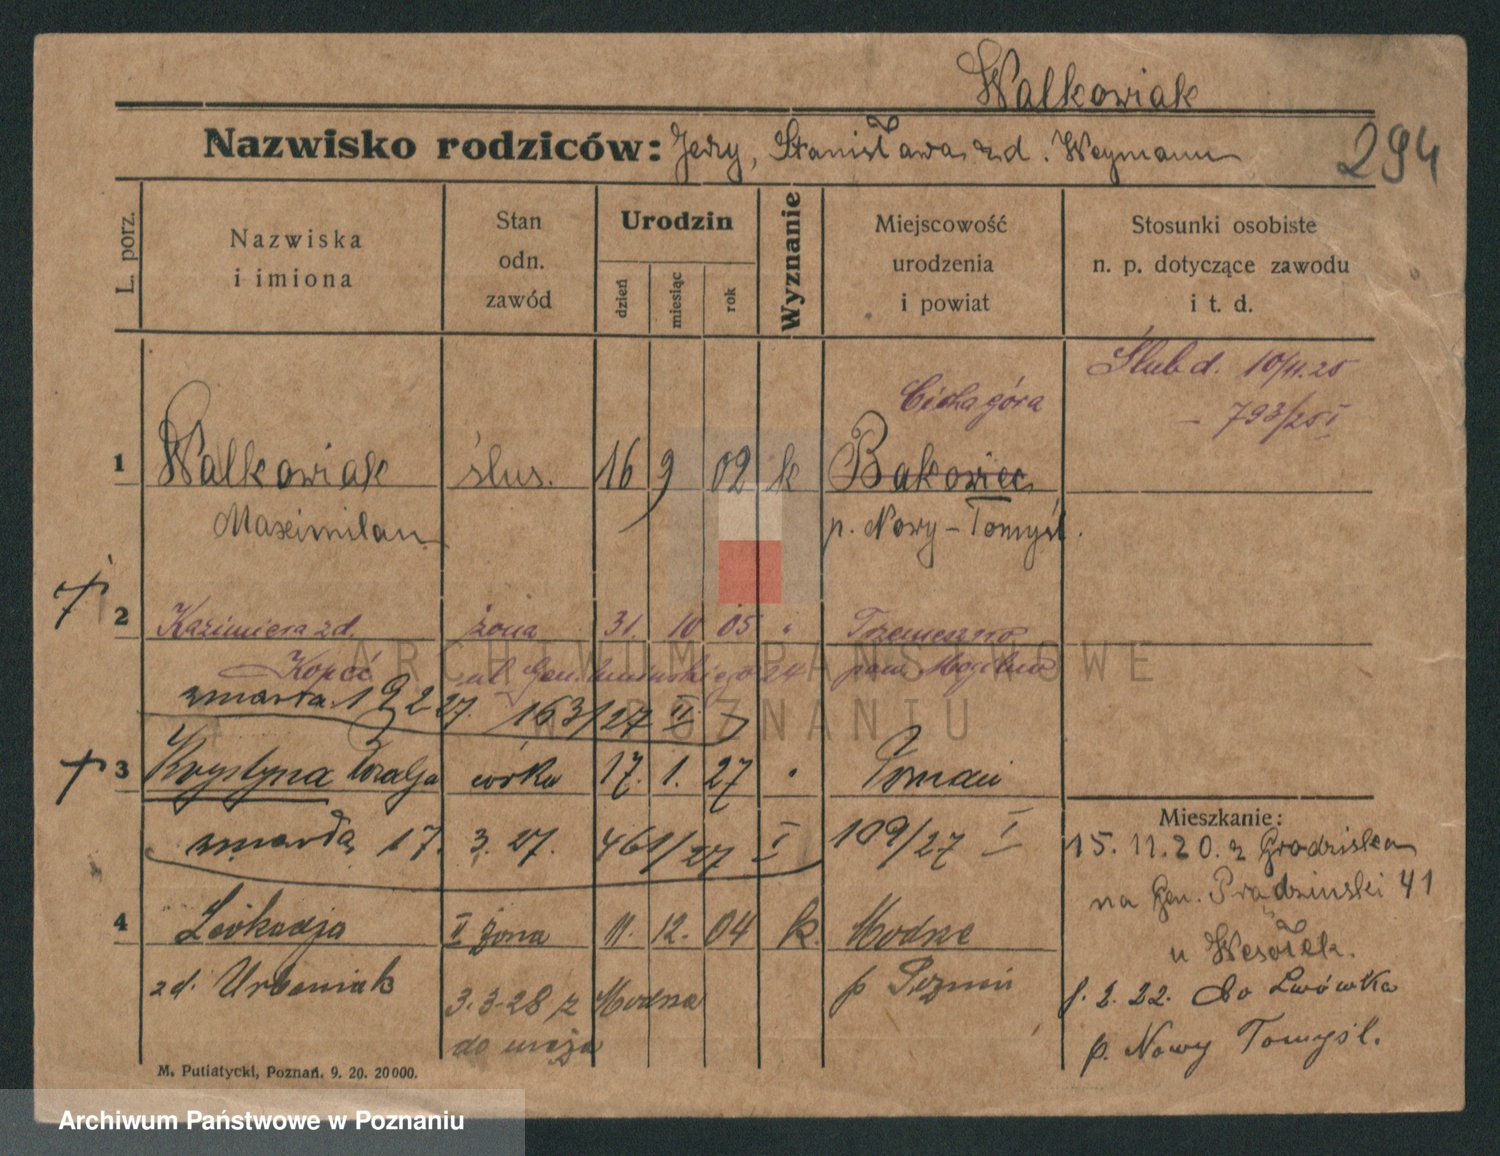 Walkowiak
Nazwisko rodziców: Jerzy, Stanisława z d. Weymann
294
L. porz.
Nazwiska
i imiona
Stan
odn.
zawód
Urodzin
dzień
miesiąc
rok
Wyznanie
Miejscowość
urodzenia
i powiat
Stosunki osobiste
n. p. dotyczące zawodu
i t. d.
Ślub d. 10/11.25
- 793/25 I
Cicha góra
1 Walkowiak ślus. 16 9 02 k Bakowiec
Maximilan p. Nowy-Tomyśl.
2 Kazimiera zd. żona 31. 10 05 Trzemeszno
Kopeć ul. Gen. 24 pow. Mogilno
zmarła 19 2 27. 163/27 II
3 Krystyna córka 17. 1. 27 Poznań
zmarła 17. 3. 27. 461/27 I 109/27 I
4 Leokadja II żona 11. 12. 04 k. Modrze
zd. Urbaniak p Poznań
3.3.28 z Modrza
do męża
Mieszkanie:
15. 11. 20. z Grodziska
na Gen. Prądzinski 41
u Wesołek.
1. 2. 22. do Lwówka
p. Nowy Tomyśl.
M. Putiatycki, Poznań. 9. 20. 20000.
ARCHIWUM PAŃSTWOWE
W POZNANIU
Archiwum Państwowe w Poznaniu